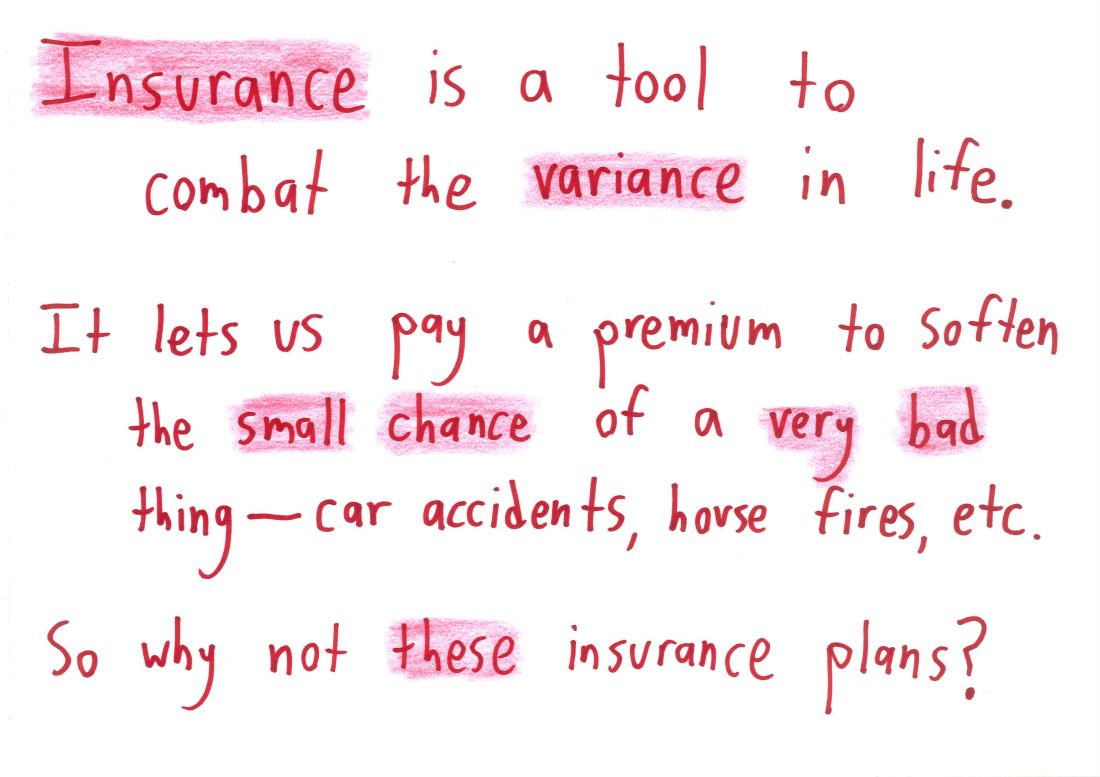 Insurance is a tool to
combat the variance in life.
It lets us pay a premium to soften
the small chance of a very bad
thing—car accidents, house fires, etc.
So why not these insurance plans?